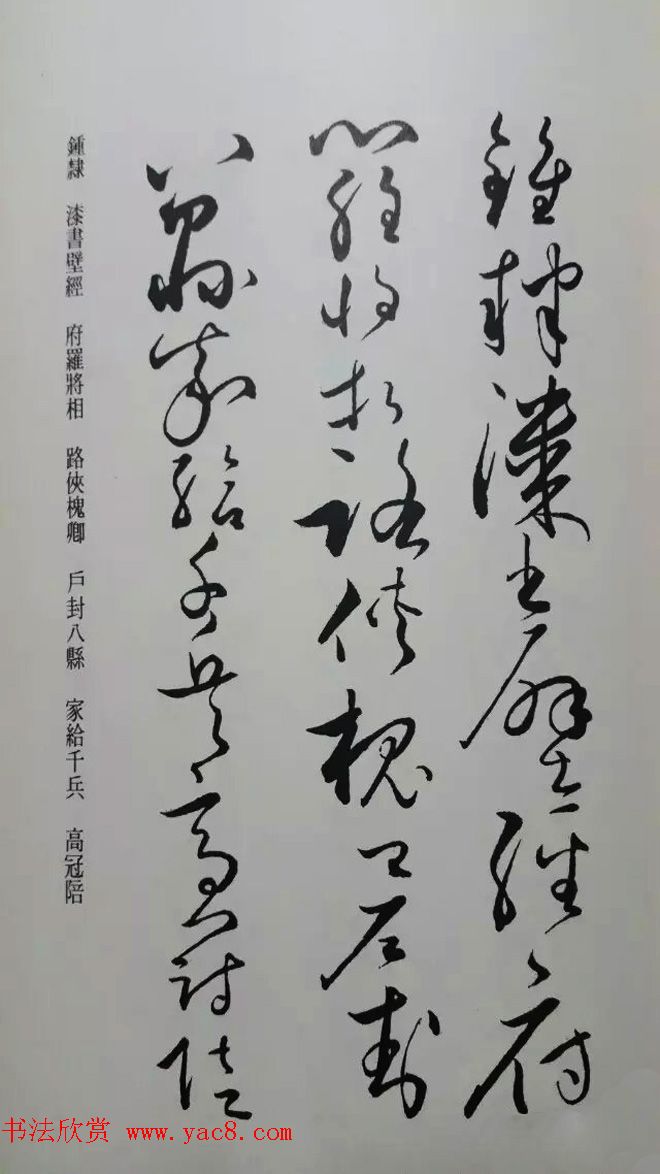 鍾隸漆書壁經府
羅將相路俠槐卿戶封
八縣家給千兵高冠陪
鍾隸 漆書壁經 府羅將相 路俠槐卿 戶封八縣 家給千兵 高冠陪
书法欣赏 www.yac8.com